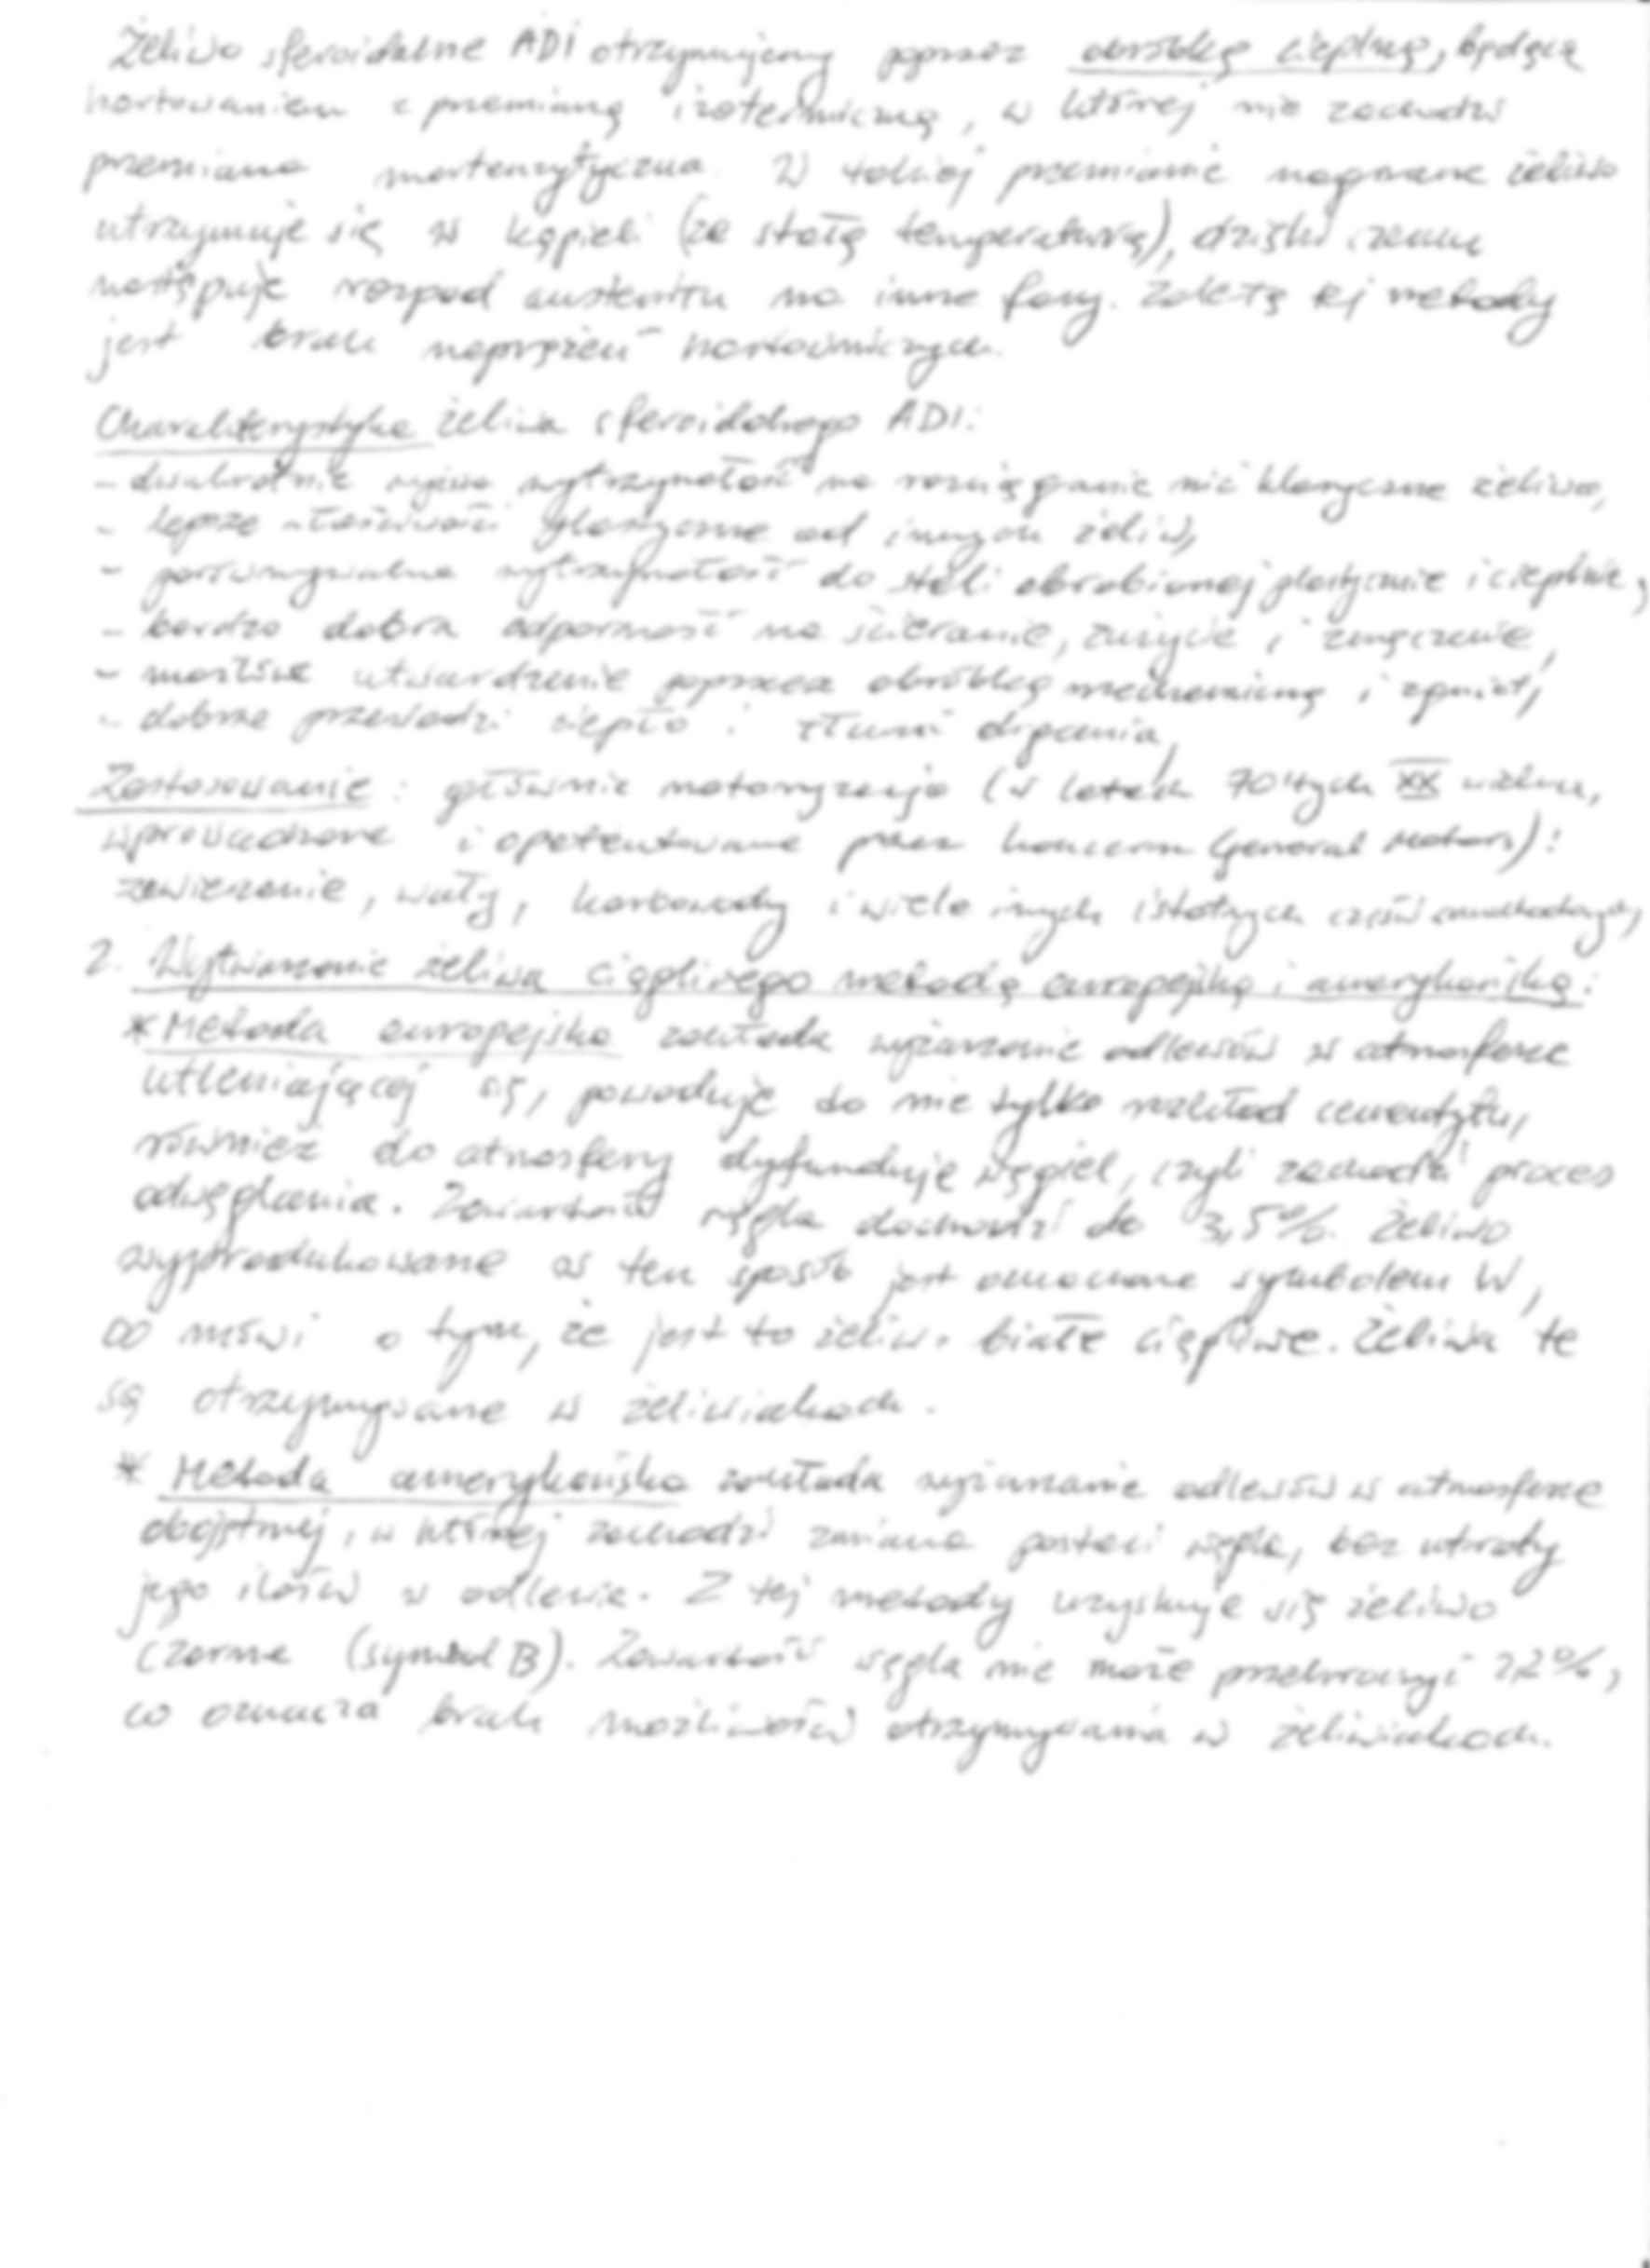 Żeliwo sferoidalne ADI otrzymujemy poprzez obróbkę cieplną, będącą
hartowaniem z przemianą izotermiczną, w której nie zachodzi
przemiana martenzytyczna. W takiej przemianie nagrzane żeliwo
utrzymuje się w kąpieli (ze stałą temperaturą), dzięki czemu
następuje rozpad austenitu na inne fazy. Zaletą tej metody
jest brak naprężeń hartowniczych.
Charakterystyka żeliwa sferoidalnego ADI:
- dwukrotnie wyższa wytrzymałość na rozciąganie niż klasyczne żeliwa,
- lepsze właściwości plastyczne od innych żeliw,
- porównywalna wytrzymałość do stali obrabianej plastycznie i cieplnie,
- bardzo dobra odporność na ścieranie, zużycie i zmęczenie,
- możliwe utwardzenie poprzez obróbkę mechaniczną i zgniot,
- dobrze przewodzi ciepło i tłumi drgania,
Zastosowanie: głównie motoryzacja (w latach 70'tych XX wieku,
wprowadzone i opatentowane przez koncern General Motors):
zawieszenie, wały, korbowody i wiele innych istotnych części
2. Wytwarzanie żeliwa ciągliwego metodą europejską i amerykańską:
* Metoda europejska zakłada wyżarzanie odlewów w atmosferze
utleniającej się, powoduje to nie tylko rozkład cementytu,
również do atmosfery dyfunduje węgiel, czyli zachodzi proces
odwęglania. Zawartość węgla dochodzi do 3,5%. Żeliwo
wyprodukowane w ten sposób jest oznaczone symbolem W,
co mówi o tym, że jest to żeliwo białe ciągliwe. Żeliwa te
są otrzymywane w żeliwiakach.
* Metoda amerykańska zakłada wyżarzanie odlewów w atmosferze
obojętnej, w której zachodzi zmiana postaci węgla, bez utraty
jego ilości w odlewie. Z tej metody uzyskuje się żeliwo
czarne (symbol B). Zawartość węgla nie może przekroczyć 2,2%,
co oznacza brak możliwości otrzymywania w żeliwiakach.